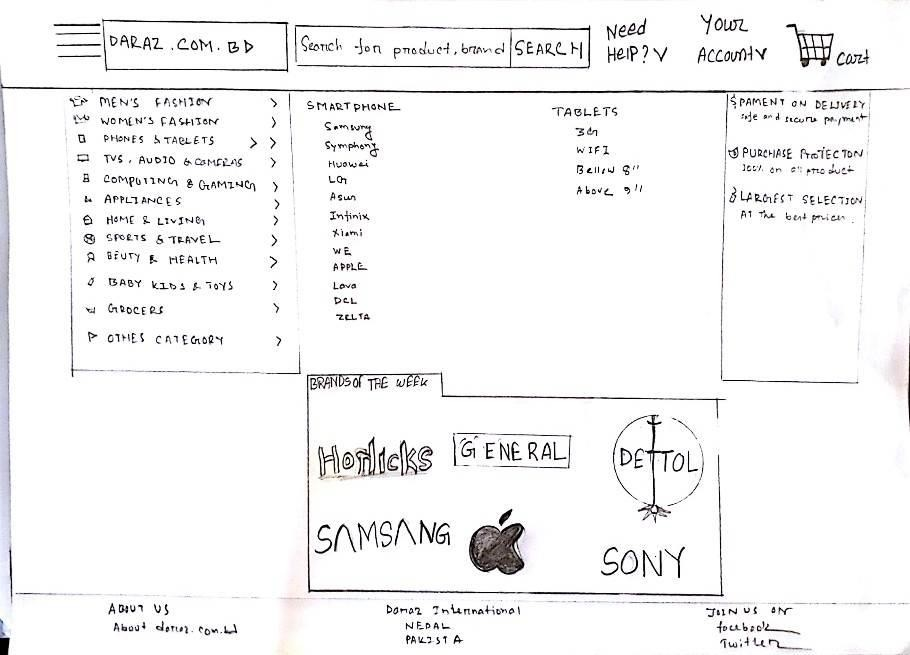 DARAZ.COM.BD
Search for product, brand
SEARCH
Need
HElP?
Your
Account
Cart
MEN'S FASHION
WOMEN'S FASHION
PHONES & TABLETS
TVS, AUDIO & CAMERAS
COMPUTING & GAMING
APPLIANCES
HOME & LIVING
SPORTS & TRAVEL
BEUTY & HEALTH
BABY KIDS & TOYS
GROCERS
OTHES CATEGORY
SMARTPHONE
Samsung
Symphony
Huawei
LG
Asus
Infinix
Xiami
WE
APPLE
Lava
DCL
ZELTA
TABLETS
3G
WIFI
Bellow 8"
Above 9"
$PAMENT ON DELIVERY
safe and secure payment
PURCHASE PROTECTON
100% on all product
LARGEST SELECTION
AT The best prices.
BRANDS OF THE WEEK
Horlicks
GENERAL
DETTOL
SAMSANG
SONY
ABOUT US
About daraz.com.bd
Daraz International
NEPAL
PAKISTA
JOIN US ON
facebook
Twitter